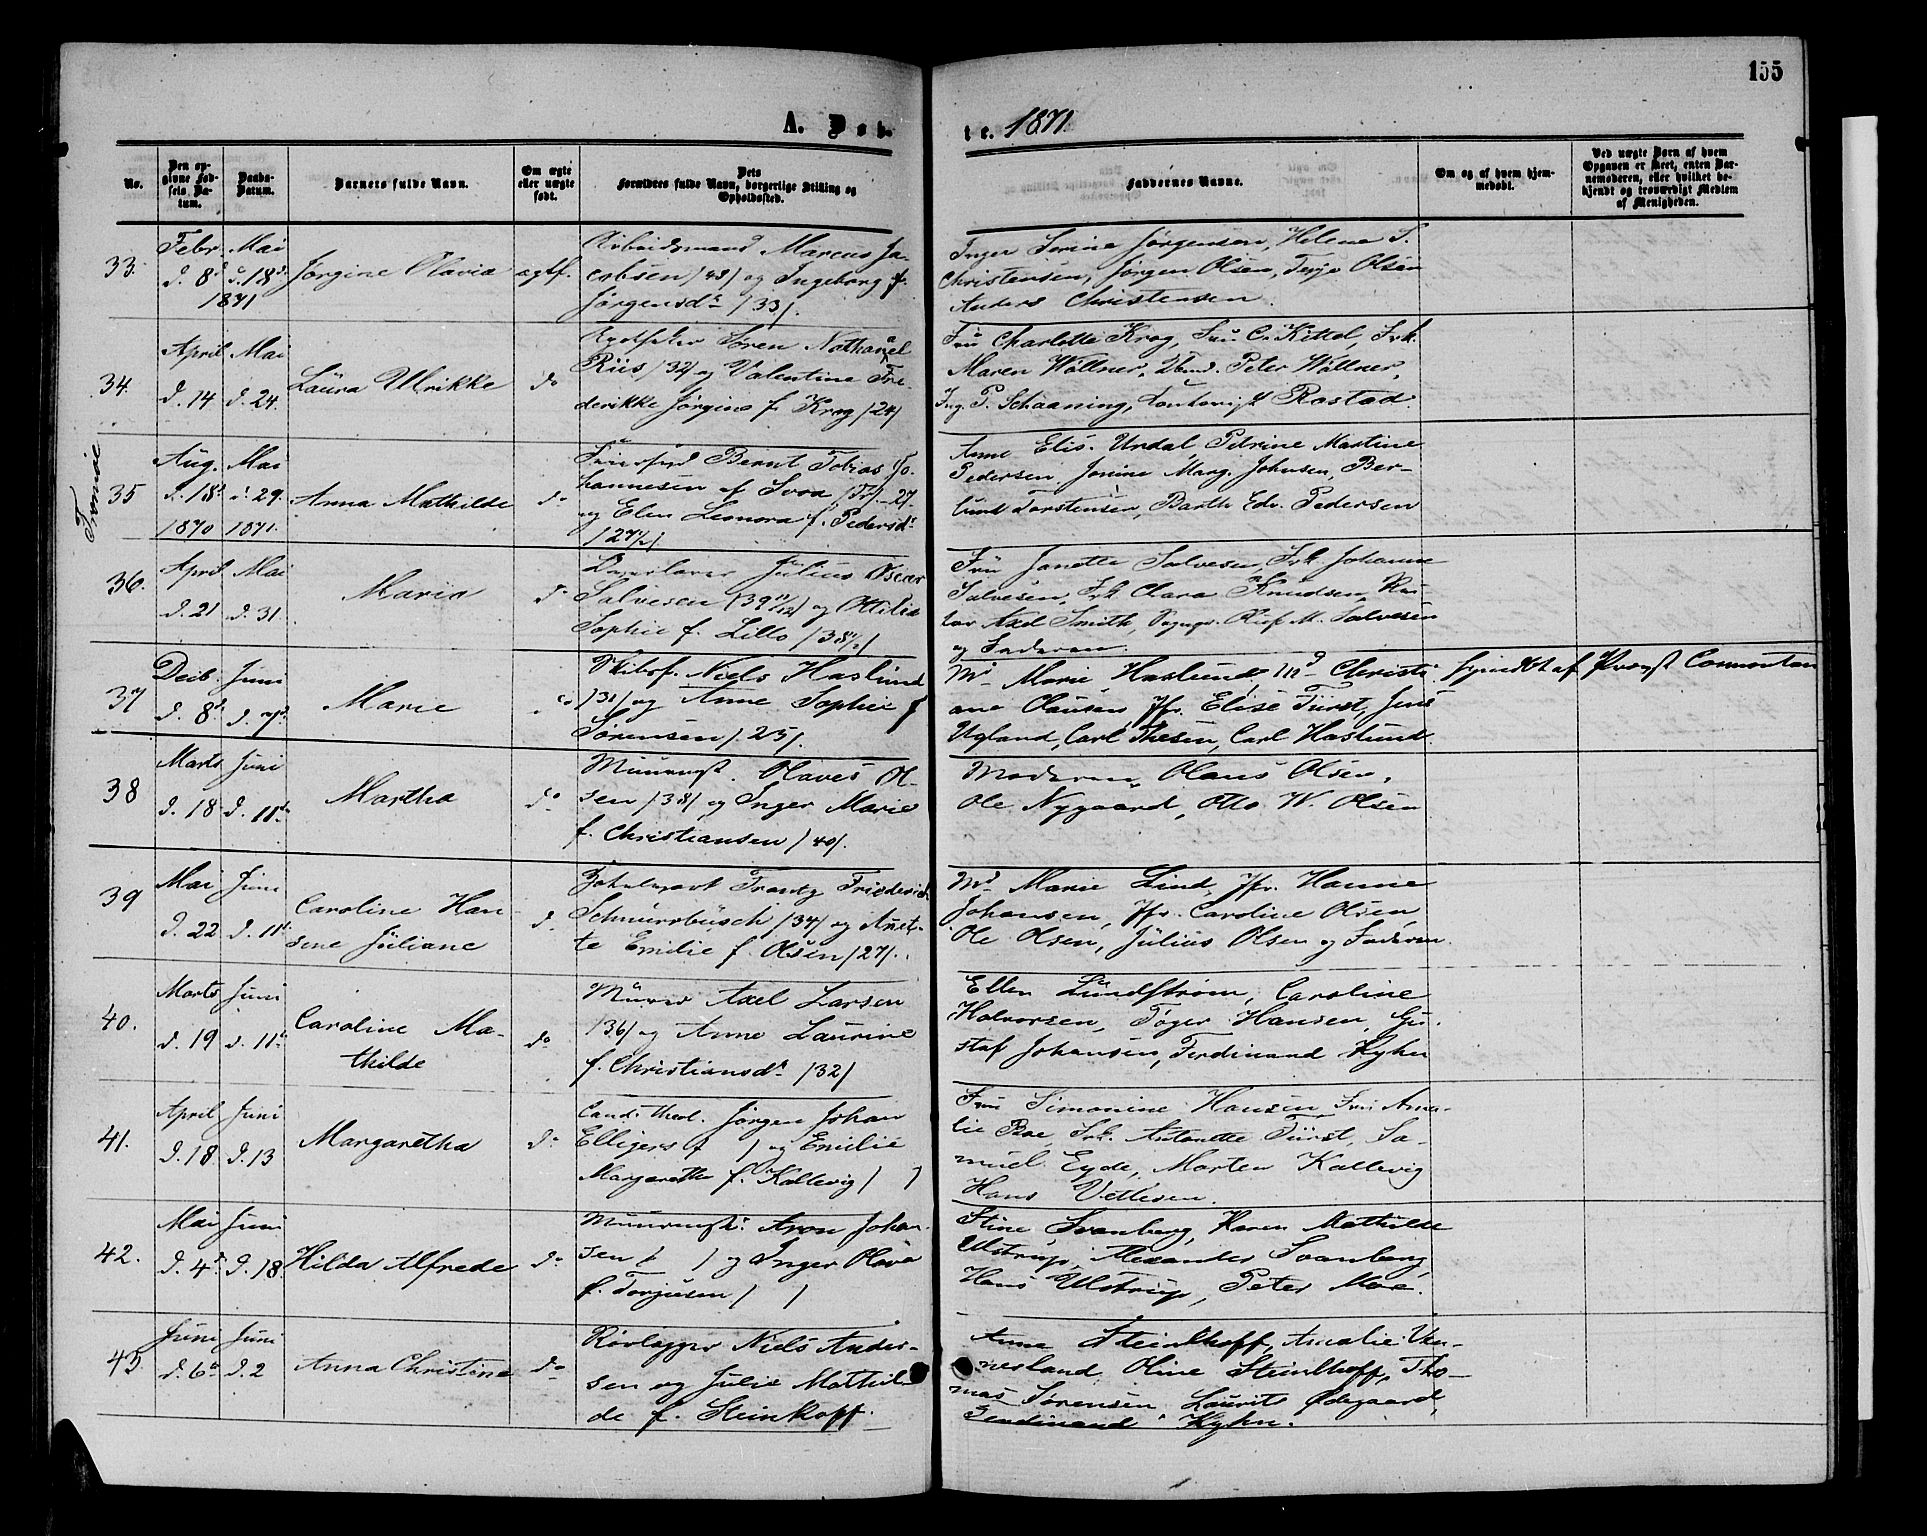 155
A. Døb
te. 1871.
No.
Den op-
givne Fød-
sels Da-
tum.
Daabs-
Datum.
Barnets fulde Navn.
Om ægte
eller uægte
født.
Dets
Forældres fulde Navn, borgerlige Stilling og
Opholdssted.
Faddernes Navne.
Om og af hvem hjem-
medøbt.
Ved uægte Børn af hvem
Opgaven er skeet, enten Bar-
nemoderen, eller hvilket be-
kjendt og troværdigt Medlem
af Menigheden.
33.
Febr. Mai
d. 8d d. 18d
1871
Jørgine Olavia
ægtf.
Arbeidsmand Marcus Ja-
cobsen /43/ og Ingeborg f.
Jørgensdr /33/.
Inger Serine Jørgensen, Helene S.
Christensen, Jørgen Olsen, Terje Olsen
Anders Christensen.
34
April Mai
d. 14 d. 24.
Laura Ulrikke
do
Apotheker Søren Nathanael
Riis /32/ og Valentine Fre-
derikke Jørgine f. Krog /24/
Fru Charlotte Krog, Fru C. Kittel, Frk.
Maren Wöllner, Peter Wöllner,
Ing. P. Schaaning, Rostad.
Tromøe
35
Aug. Mai
d. 18d d. 29.
1870 1871.
Anna Mathilde
do
Bernt Tobias Jo-
hannesen af /Tr/. 27
og Elen Leonora f. Pedersdr
/27½/.
Anne Elis. Urdal, Petrine Martine
Pedersen, Jonine Marg. Johnsen, Ber-
Torstensen, Barth Edv. Pedersen
36.
April Mai
d. 21 d. 31.
Maria
do
Julius Oscar
Salvesen (39 11/12) og Ottilia
Sophie f. Lillo /38½/
Fru Janette Salvesen, Frk Johanne
Salvesen, Frk Clara Knudsen,
Axel Smith, M. Salvesen
og Faderen.
37
Decb. Juni
d. 8d d. 7d
Marie
do
Niels Haslund
/31/ og Anne Sophie f
Sørensen /25/.
Md Marie Haslund, Md Christi-
ane Clausen, Jfr. Elise Fürst, Jens
Ugland, Carl Thesen, Carl Haslund.
38
Marts Juni
d. 18 d. 11d
Martha
do
Muursvgt. Olaves Ol-
sen /38/ og Inger Marie
f. Christiansen /40/.
Moderen, Olaus Olsen,
Ole Nygaard, Otto W. Olsen
39
Mai Juni
d. 22 d. 11d
Caroline Han-
sine Juliane
do
Frantz Friederich
Schnurrbusch /34/ og Anet-
te Emilie f. Olsen /27/.
Md Marie Lind, Jfr. Hanne
Johansen, Jfr. Caroline Olsen,
Ole Olsen, Julius Olsen og Faderen.
40.
Marts Juni
d. 19 d. 11d
Caroline Ma-
thilde
do
Murer Axel Larsen
/36/ og Anne Laurine
f. Christiansdr /32/
Ellen Lundstrøm, Caroline
Halvorsen, Tøger Hansen, Gu-
staf Johansen, Ferdinand Kyhn
41.
April Juni
d. 18 d. 13
Margaretha
do
Cand. theol. Jørgen Johan
Elligers / / og Emilie
Margarethe f. Kallevig / /
Fru Simonine Hansen, Fru Ama-
lie Boe, Frk. Antonette Fürst, Sa-
muel Eyde, Morten Kallevig
Hans Vettesen.
42.
Mai Juni
d. 4d d. 18.
Hilda Alfrede
do
Aron Johan-
sen / / og Inger Olava
f. Torjusen / /
Stine Svanberg, Karen Mathilde
Ulstrup, Alexander Svanberg
Hans Ulstrup, Peter Moe.
43.
Juni Juni
d. 6d d. 2
Anna Christine
do
Rørlægger Niels Ander-
sen og Julie Mathil-
de f. Steinkoff.
Anna Steinkhoff, Amalie Ven-
nerland, Oline Steinkhoff, Tho-
mas Sørensen, Laurits Ødegaard,
Ferdinand Kyhn.